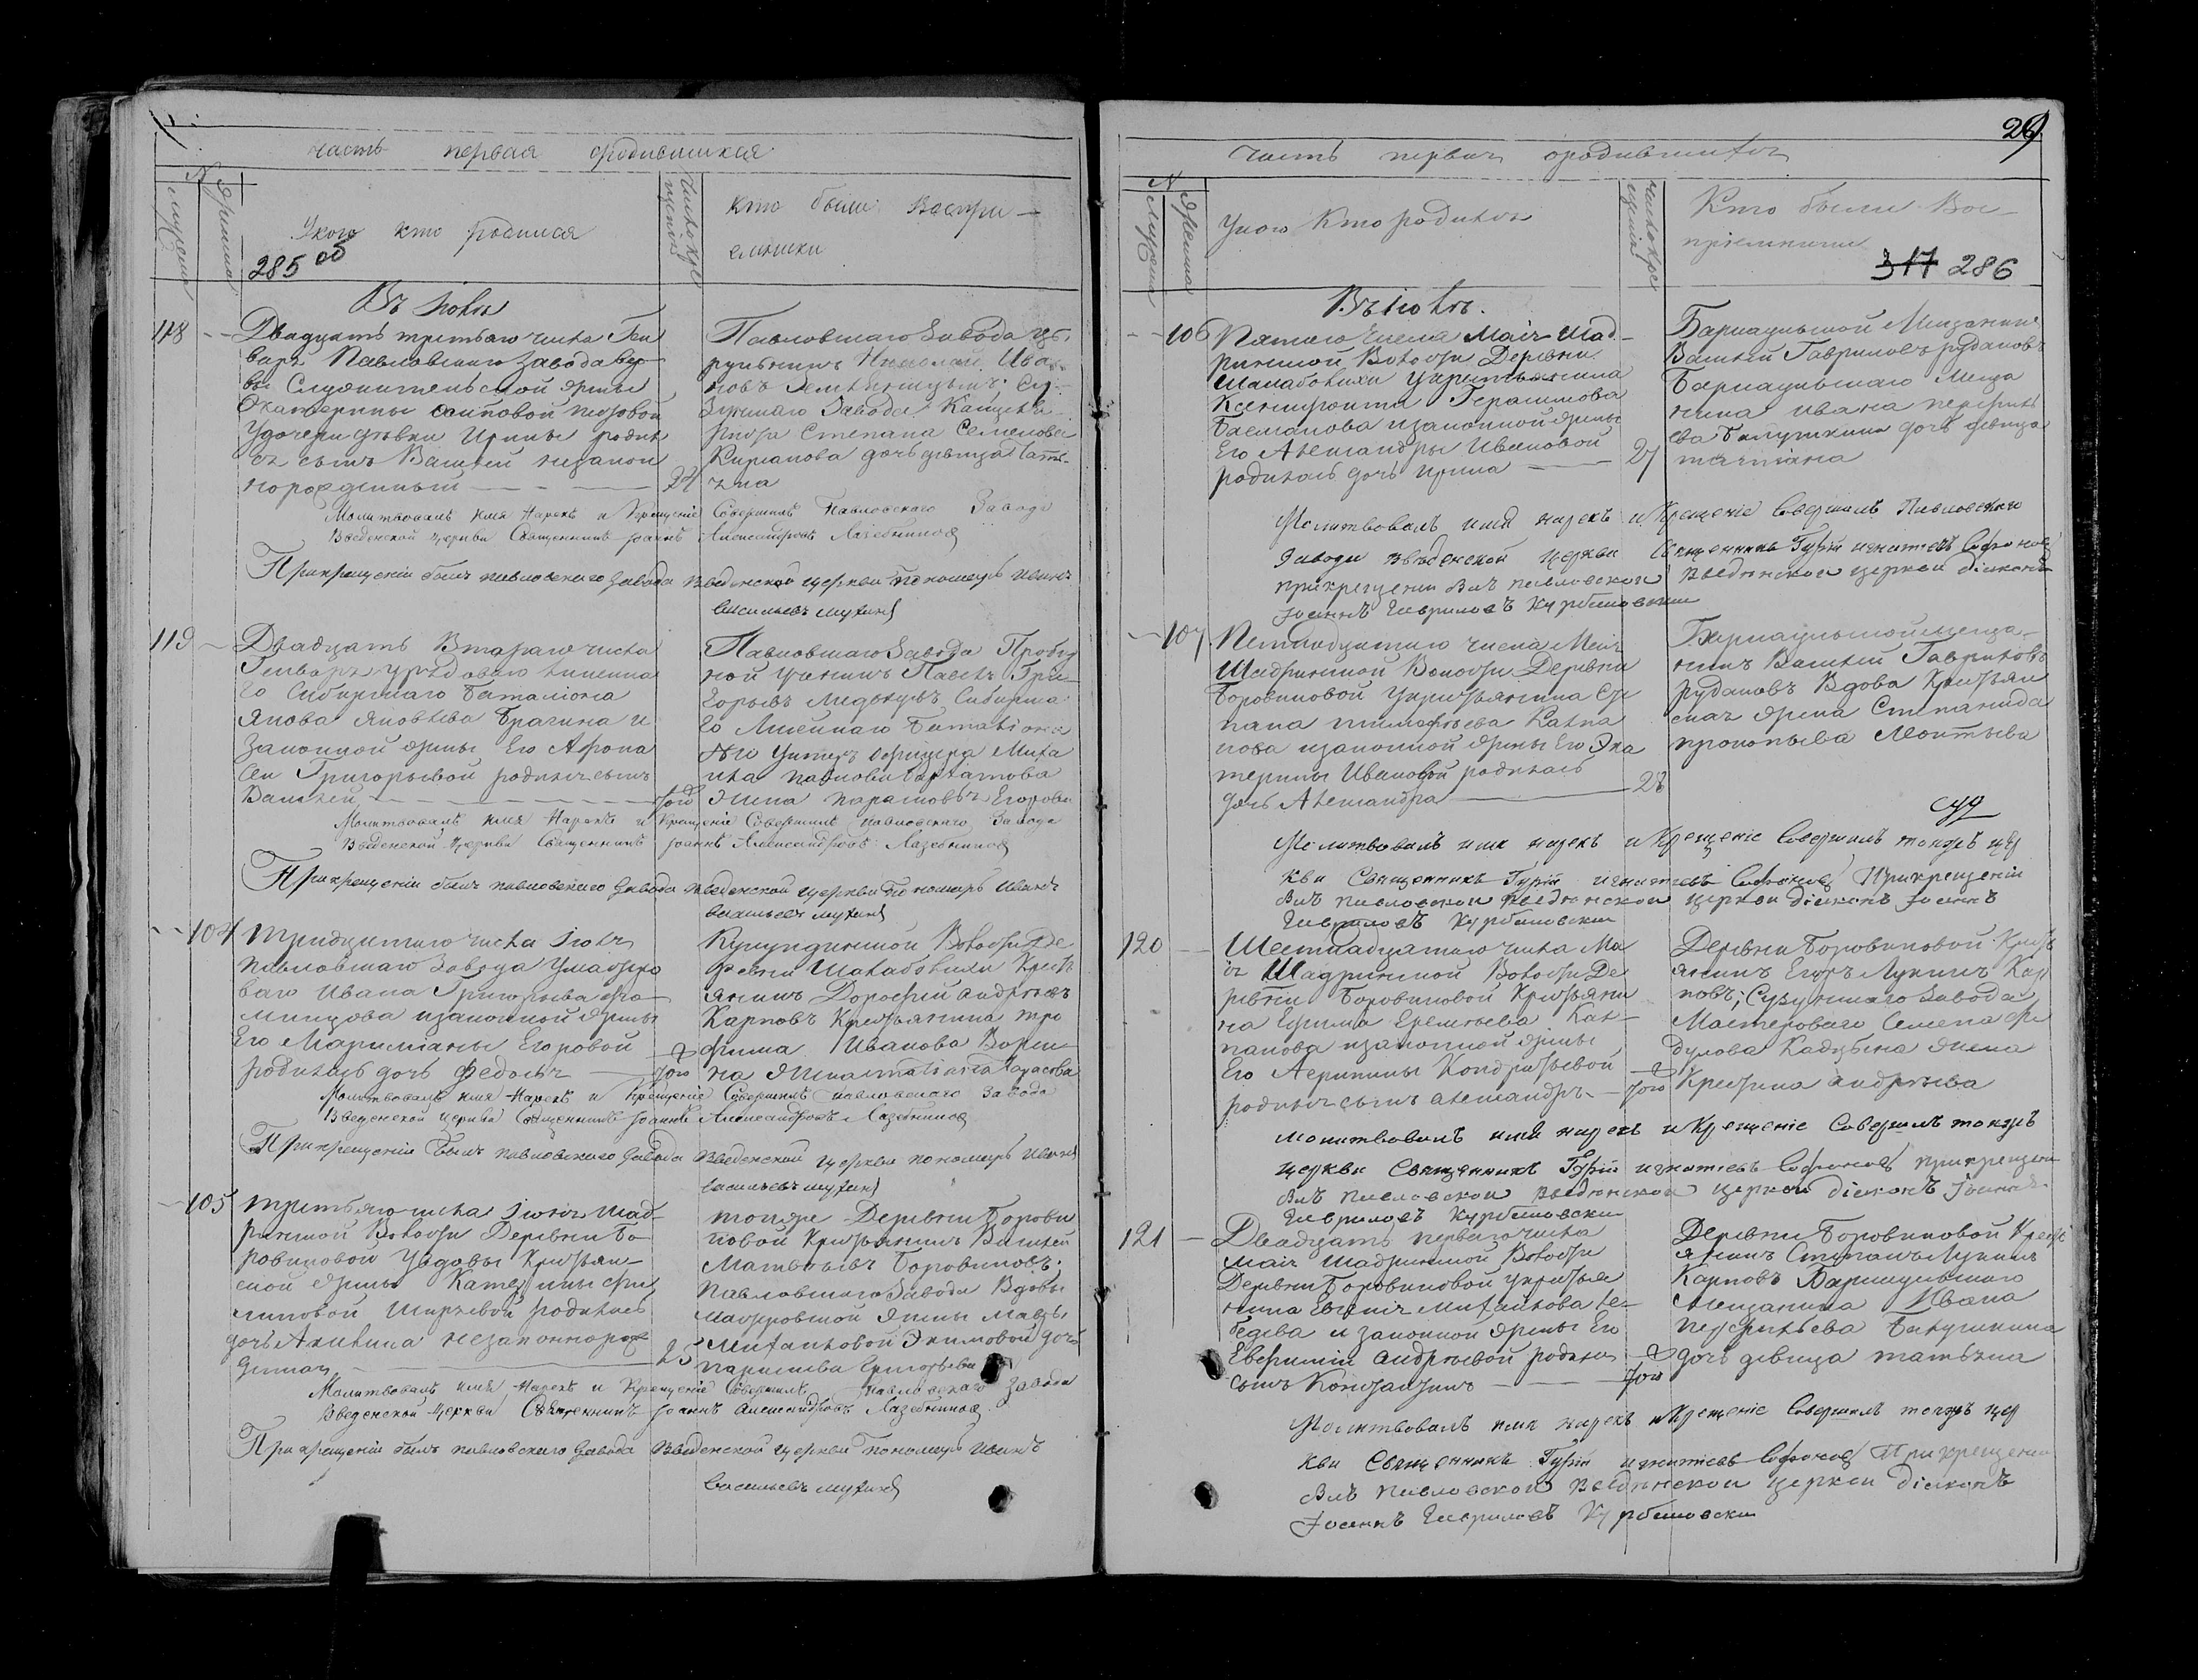 часть первая ородившихся
№
мужеска
женска
Укого кто родился
число кре
щенія
кто были Воспри-
емники
285 об
Въ
118
Двадцать третьяго числа Ген
варя Павловскаго завода вдо-
вы Служительской жены
Екатерины Осиповой
Удочери девки Ирины родил
ся сынъ Василей незакон
норожденный
24
Павловскаго завода
Николай Ива-
новъ
завода
Степана Семенова
дочь девица Тать-
яна
Молитвовалъ имя Нарекъ и Крещеніе Совершилъ Павловскаго Завода
Введенской Церкви Священникъ Іоаннъ Александровъ Лазебников
Прикрещеніи былъ павловского Завода Введенской церкви Пономарь Иванъ
Васильевъ мухин
119
Двадцать Втараго числа
Генваря
го Сибирскаго Баталіона
Якова Яковлева Брагина и
законной жены Его Афона
сеи Григорьевой родился сынъ
Василей
того
Павловскаго Завода Пробир
ной ученикъ Павелъ Гри-
горьевъ Сибирска
го Линейнаго Баталіона
Унтеръ Офицера Миха
ила Павлова
жена парасковья Егорова
Молитвовалъ имя Нарекъ и Крещеніе Совершилъ павловскаго Завода
Введенской Церкви Священникъ Іоаннъ Александровъ Лазебников
Прикрещеніи былъ павловского Завода Введенской церкви Пономарь Иванъ
васильевъ мухин
104
Тридцатаго числа
павловскаго завода Умастеро
ваго Ивана Григорьева
изаконной жены
Его Маримьяны Егоровой
родилась дочь Федосья
того
Кулундинской Волости Де
ревни Шалаболихи Кресть
янинъ Дорофей андреевъ
Карповъ Крестьянина тро
фима Иванова
на жена Тарасова
Молитвовалъ имя Нарекъ и Крещеніе Совершилъ павловскаго завода
Введенской церкви Священникъ Іоаннъ Александровъ Лазебников
Прикрещеніи былъ павловского Завода Введенской церкви пономарь Иванъ
васильевъ мухин
105
третьяго числа Іюня Шад-
ринской Волости Деревни Бо-
ровиковой Увдовы Крестьян-
ской жены Катерины Фи
липовой родилась
дочь Акилина незаконнорож
денная
25
тойже Деревни Борови
ковой Крестьянинъ Василей
Матвеевъ Боровиковъ;
Павловскаго Завода Вдовы
жены Мавры
Михайловой Экимовой дочь
Григорьева
Молитвовалъ имя Нарекъ и Крещеніе Совершилъ павловскаго Завода
Введенской Церкви Священникъ Іоаннъ Александровъ Лазебников
Прикрещеніи былъ павловского Завода Введенской церкви Пономарь Иванъ
Васильевъ мухин
29
часть первая ородившихся
№
мужеска
женска
Укого Кто родился
число кре
щенія
Кто были Вос-
пріемники
317 286
106
Пятаго Числа Маія Шад-
ринской Волости Деревни
Шалаболихи Укрестьянина
Ксенофонта Герасимова
изаконной жены
Его Александры Ивановой
родилась дочь Ирина
27
Барнаульской Мещанинъ
Василей Гавриловъ рудаковъ
Барнаульскаго Меща
нина Ивана перфиль
ева Балушкина дочь девица
татіана
Молитвовалъ имя нарекъ и Крещеніе Совершилъ Павловскаго
Завода Введенской церкви Священникъ Гурій игнатьевъ Софонов
прикрещеніи Былъ павловской Введенской церкви діаконъ
Іоаннъ Гавриловъ Курбановски
107
Петнадцатаго числа Маія
Шадринской Волости Деревни
Боровиковой Укрестьянина Сте
пана тимофеева Капка
нова изаконной жены Его Эка
терины Ивановой родилась
дочь Александра
28
Барнаульской меща-
нинъ Василей Гавриловъ
рудаковъ Вдова Крестьян
ская жена Степанида
прокопьева
Молитвовалъ имя нарекъ и Крещеніе Совершилъ тойжъ цер
кви Священникъ Гурій игнатьевъ Софонов Прикрещеніи
Былъ павловской Введенской церкви діаконъ Іоаннъ
Гавриловъ Курбановски
120
Шестнадцатаго числа Ма
ія Шадринской Волости Де
ревни Боровиковой Крестьяни
на Ефима Еремеева Кап-
канова изаконной жены
Его Агрипины Кондратьевой
родился сынъ александръ
того
Деревни Боровиковой Кресть
янинъ Егоръ Лукинъ Кар
повъ; Сузунскаго Завода
Мастероваго Семена Фе
дулова жена
андреева
Молитвовалъ имя нарекъ и Крещеніе Совершилъ тойжъ
церкви Священникъ Гурій игнатьевъ Софонов прикрещеніи
Былъ павловской Введенской церкви діаконъ Іоаннъ
Гавриловъ Курбановски
121
Двадцать перваго числа
Маія Шадринской Волости
Деревни Боровиковой Укрестья
нина Евгенія Михайлова Ле-
бедева и законной жены Его
Евфиміи андреевой родился
сынъ Констянтинъ
того
Деревни Боровиковой Кресть
янинъ Степанъ Лукинъ
Карповъ Барнаульскаго
мещанина Ивана
перфильева Балушкина
дочь девица татьяна
Молитвовалъ имя нарекъ и Крещеніе Совершилъ тойжъ цер
кви Священникъ Гурій игнатьевъ Софонов Прикрещеніи
Былъ павловской Введенской церкви діаконъ
Іоаннъ Гавриловъ Курбановски